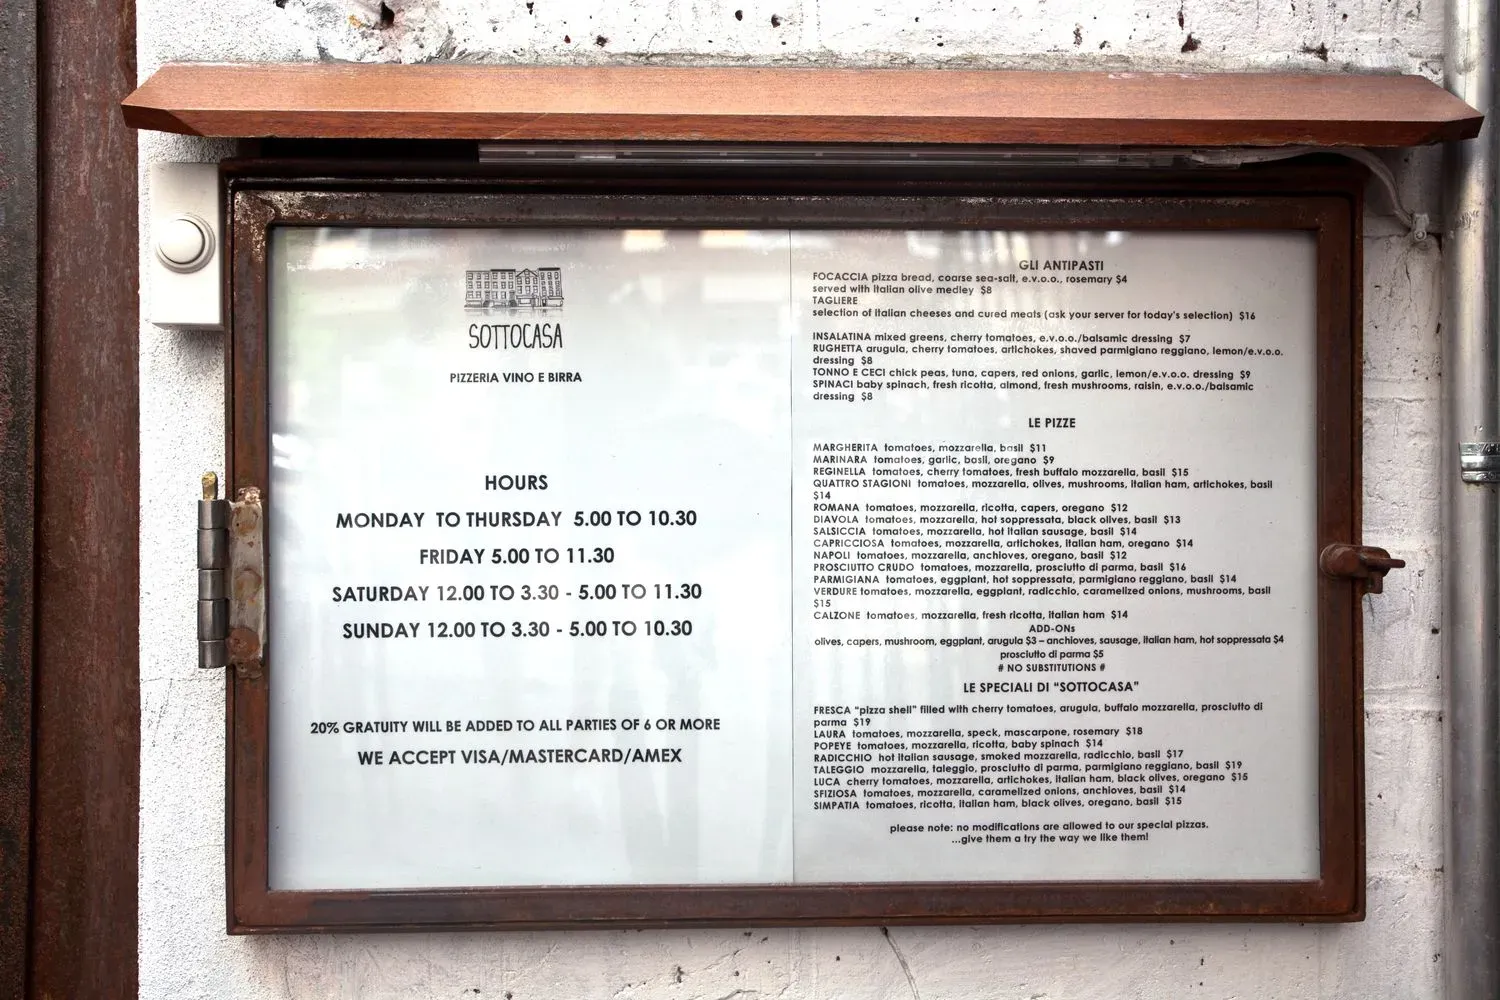 SOTTOCASA
PIZZERIA VINO E BIRRA
HOURS
MONDAY TO THURSDAY 5.00 TO 10.30
FRIDAY 5.00 TO 11.30
SATURDAY 12.00 TO 3.30 - 5.00 TO 11.30
SUNDAY 12.00 TO 3.30 - 5.00 TO 10.30
20% GRATUITY WILL BE ADDED TO ALL PARTIES OF 6 OR MORE
WE ACCEPT VISA/MASTERCARD/AMEX
GLI ANTIPASTI
FOCACCIA pizza bread, coarse sea-salt, e.v.o.o., rosemary $4
served with Italian olive medley $8
TAGLIERE
selection of Italian cheeses and cured meats (ask your server for today's selection) $16
INSALATINA mixed greens, cherry tomatoes, e.v.o.o./balsamic dressing $7
RUGHETTA arugula, cherry tomatoes, artichokes, shaved parmigiano reggiano, lemon/e.v.o.o.
dressing $8
TONNO E CECI chick peas, tuna, capers, red onions, garlic, lemon/e.v.o.o. dressing $9
SPINACI baby spinach, fresh ricotta, almond, fresh mushrooms, raisin, e.v.o.o./balsamic
dressing $8
LE PIZZE
MARGHERITA tomatoes, mozzarella, basil $11
MARINARA tomatoes, garlic, basil, oregano $9
REGINELLA tomatoes, cherry tomatoes, fresh buffalo mozzarella, basil $15
QUATTRO STAGIONI tomatoes, mozzarella, olives, mushrooms, italian ham, artichokes, basil
$14
ROMANA tomatoes, mozzarella, ricotta, capers, oregano $12
DIAVOLA tomatoes, mozzarella, hot soppressata, black olives, basil $13
SALSICCIA tomatoes, mozzarella, hot Italian sausage, basil $14
CAPRICCIOSA tomatoes, mozzarella, artichokes, Italian ham, oregano $14
NAPOLI tomatoes, mozzarella, anchioves, oregano, basil $12
PROSCIUTTO CRUDO tomatoes, mozzarella, prosciutto di parma, basil $16
PARMIGIANA tomatoes, eggplant, hot soppressata, parmigiano reggiano, basil $14
VERDURE tomatoes, mozzarella, eggplant, radicchio, caramelized onions, mushrooms, basil
$15
CALZONE tomatoes, mozzarella, fresh ricotta, Italian ham $14
ADD-ONs
olives, capers, mushroom, eggplant, arugula $3 – anchioves, sausage, italian ham, hot soppressata $4
prosciutto di parma $5
# NO SUBSTITUTIONS #
LE SPECIALI DI "SOTTOCASA"
FRESCA "pizza shell" filled with cherry tomatoes, arugula, buffalo mozzarella, prosciutto di
parma $19
LAURA tomatoes, mozzarella, speck, mascarpone, rosemary $18
POPEYE tomatoes, mozzarella, ricotta, baby spinach $14
RADICCHIO hot italian sausage, smoked mozzarella, radicchio, basil $17
TALEGGIO mozzarella, taleggio, prosciutto di parma, parmigiano reggiano, basil $19
LUCA cherry tomatoes, mozzarella, artichokes, italian ham, black olives, oregano $15
SFIZIOSA tomatoes, mozzarella, caramelized onions, anchioves, basil $14
SIMPATIA tomatoes, ricotta, italian ham, black olives, oregano, basil $15
please note: no modifications are allowed to our special pizzas.
...give them a try the way we like them!